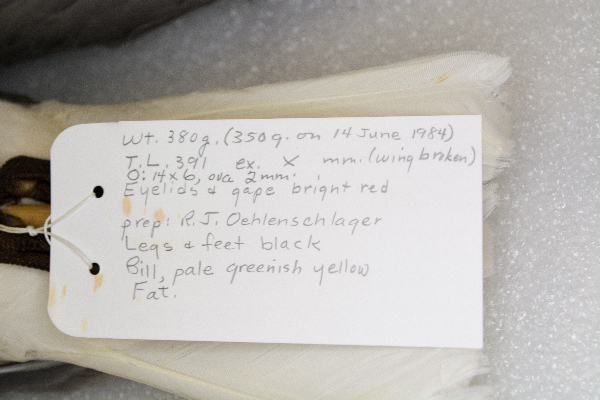 Wt. 380g. (350g. on 14 June 1984)
T.L. 391 ex. X mm. (wing broken)
O: 14x6, ova 2mm.
Eyelids & gape bright red
prep: R.J. Oehlenschlager
Legs & feet black
Bill, pale greenish yellow
Fat.